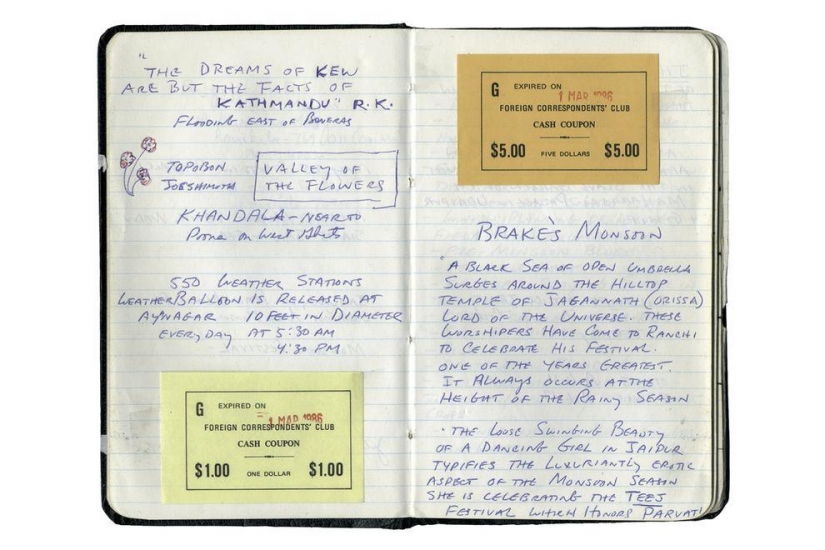 "THE DREAMS OF KEW
ARE BUT THE FACTS OF
KATHMANDU" R.K.
FLOODING EAST OF BENERAS
TOPOBON
JOESHIMOTH
VALLEY OF
THE FLOWERS
KHANDALA - NEAR TO
on West Ghats
550 WEATHER STATIONS
WEATHERBALLOON IS RELEASED AT
AYANAGAR 10 FEET IN DIAMETER
EVERYDAY AT 5:30 AM
4:30 PM
G EXPIRED ON
1 MAR 1986
FOREIGN CORRESPONDENTS' CLUB
CASH COUPON
$1.00 ONE DOLLAR $1.00
G EXPIRED ON
1 MAR 1986
FOREIGN CORRESPONDENTS' CLUB
CASH COUPON
$5.00 FIVE DOLLARS $5.00
BRAKE'S MONSOON
"A BLACK SEA OF OPEN UMBRELLA
SURGES AROUND THE HILLTOP
TEMPLE OF JAGANNATH (ORISSA)
LORD OF THE UNIVERSE. THESE
WORSHIPERS HAVE COME TO RANCHI
TO CELEBRATE HIS FESTIVAL.
ONE OF THE YEARS GREATEST.
IT ALWAYS OCCURS AT THE
HEIGHT OF THE RAINY SEASON
"THE LOOSE SWINGING BEAUTY
OF A DANCING GIRL IN JAIPUR
TYPIFIES THE LUXURIANTLY EROTIC
ASPECT OF THE MONSOON SEASON
SHE IS CELEBRATING THE TEEJ
FESTIVAL WHICH HONORS PARVATI